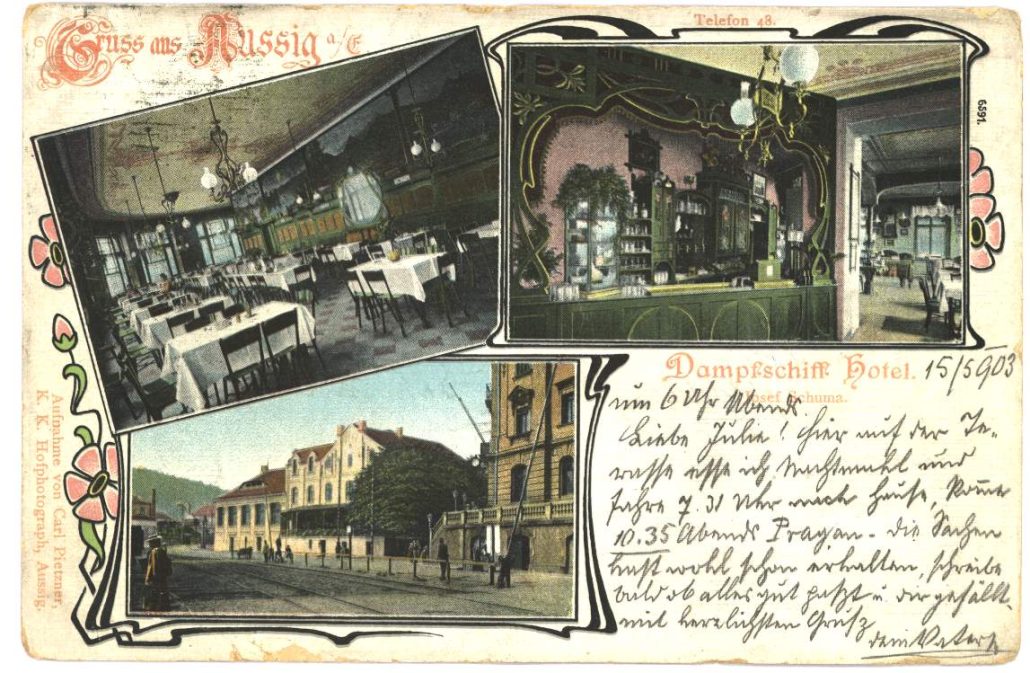 Gruss aus Aussig a/E
Telefon 48.
6591.
Dampfschiff Hotel.
Josef Schuma.
15/5 903
um 6 Uhr Abends.
Liebe Julie! Hier auf der Te-
rasse esse ich Nachtmahl und
fahre 7.31 Uhr nach Hause, komme
10.35 Abends Prag an – die Sachen
hast wohl schon erhalten, schreibe
bald ob alles gut paßt u. dir gefällt.
mit herzlichsten Gruß
dein Vater
Aufnahme von Carl Pietzner,
K. K. Hofphotograph, Aussig.